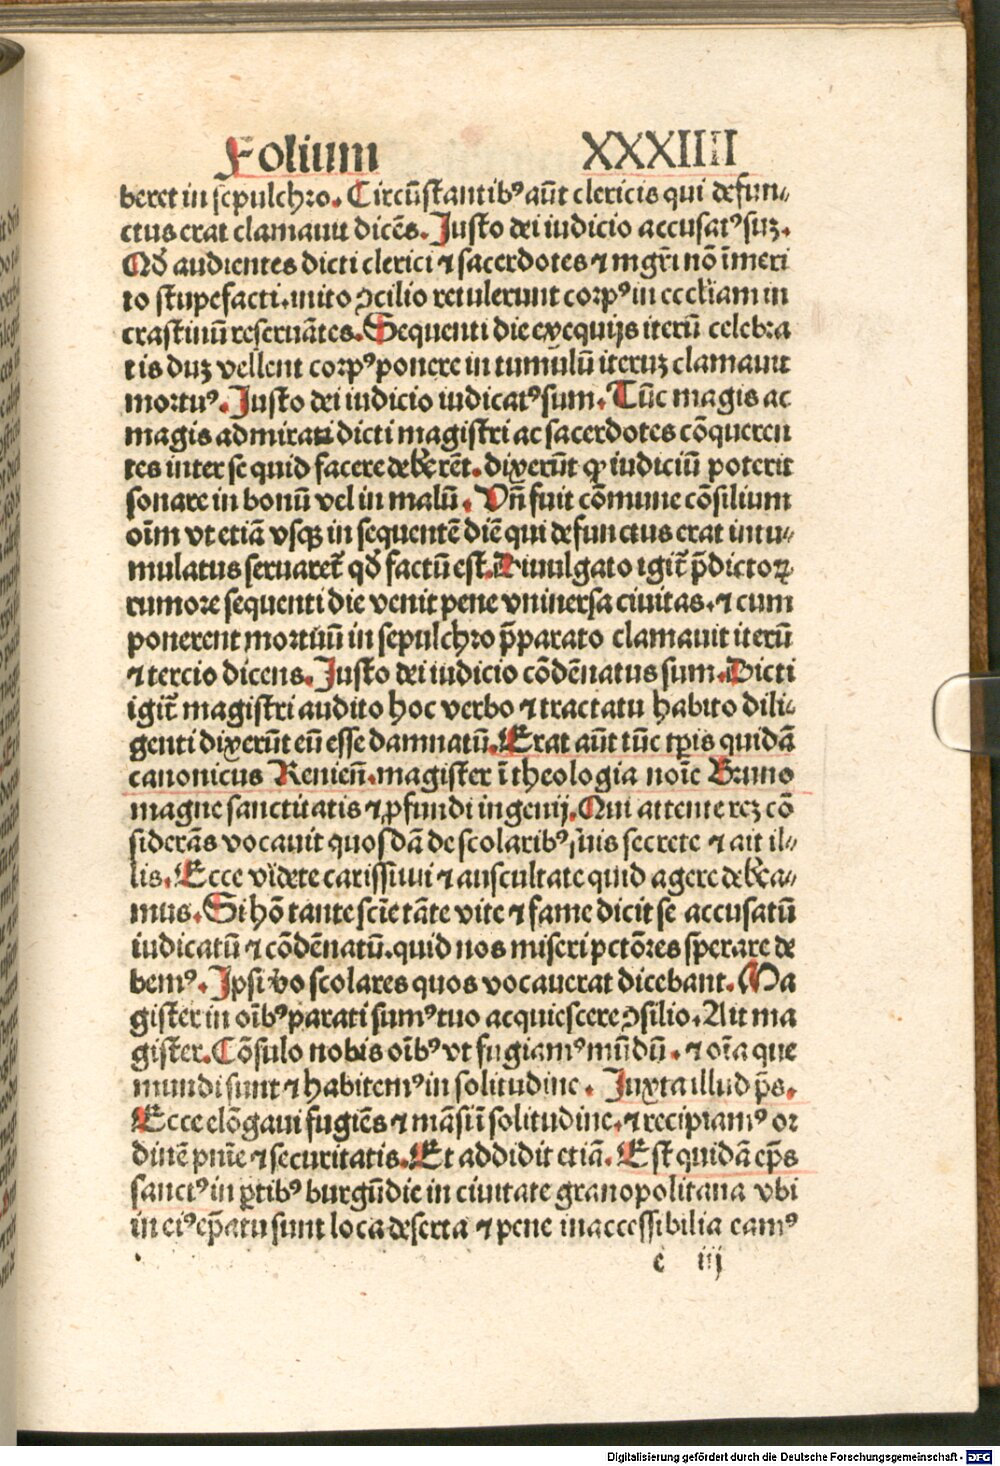 Folium XXXIIII
beret in sepulchro. Circūstantibꝰ aūt clericis qui defun⸗
ctus erat clamauit dicēs. Justo dei iudicio accusatꝰ suꝫ.
Qđ audientes dicti clerici ⁊ sacerdotes ⁊ mgr̄i nō īmeri
to stupefacti. inito ꝯcilio retulerunt corpꝰ in eccl̄iam in
crastinū reseruātes. Sequenti die exequijs iterū celebra
tis duꝫ vellent corpꝰ ponere in tumulū iteruꝫ clamauit
mortuꝰ. Justo dei iudicio iudicatꝰ sum. Tūc magis ac
magis admirati dicti magistri ac sacerdotes cōqueren
tes inter se quid facere deberēt. dixerūt ꝙ iudiciū poterit
sonare in bonū vel in malū. Vn̄ fuit cōmune cōsilium
oīm vt etiā vsqꝫ in sequentē diē qui defunctus erat intu⸗
mulatus seruaret᷑ qđ factū est. Diuulgato igit᷑ p̄dictoꝝ
rumore sequenti die venit pene vniuersa ciuitas. ⁊ cum
ponerent mortuū in sepulchro p̄parato clamauit iterū
⁊ tercio dicens. Justo dei iudicio cōdēnatus sum. Dicti
igit᷑ magistri audito hoc verbo ⁊ tractatu habito dili⸗
genti dixerūt eū esse damnatū. Erat aūt tūc tp̄is quidā
canonicus Remeñ. magister ī theologia noīe Bruno
magne sanctitatis ⁊ ꝓfundi ingenij. Qui attente reꝫ cō
siderās vocauit quosdā de scolaribꝰ suis secrete ⁊ ait il⸗
lis. Ecce videte carissimi ⁊ auscultate quid agere debea⸗
mus. Si hō tante scīe tāte vite ⁊ fame dicit se accusatū
iudicatū ⁊ cōdēnatū. quid nos miseri pctōres sperare de
bemꝰ. Ipsi vo scolares quos vocauerat dicebant. Ma
gister in oībꝰ parati sumꝰ tuo acquiescere ꝯsilio. Ait ma
gister. Cōsulo nobis oībꝰ vt fugiamꝰ mūdū. ⁊ oīa que
mundi sunt ⁊ habitemꝰ in solitudine. Juxta illud p̄s.
Ecce elōgaui fugiēs ⁊ māsi ī solitudine. ⁊ recipiamꝰ or
dinē pn̄ie ⁊ securitatis. Et addidit etiā. Est quidā ep̄s
sanctꝰ in ꝑtibꝰ burgūdie in ciuitate granopolitana vbi
in eiꝰ ep̄atu sunt loca deserta ⁊ pene inaccessibilia eamꝰ
e iij
Digitalisierung gefördert durch die Deutsche Forschungsgemeinschaft - DFG